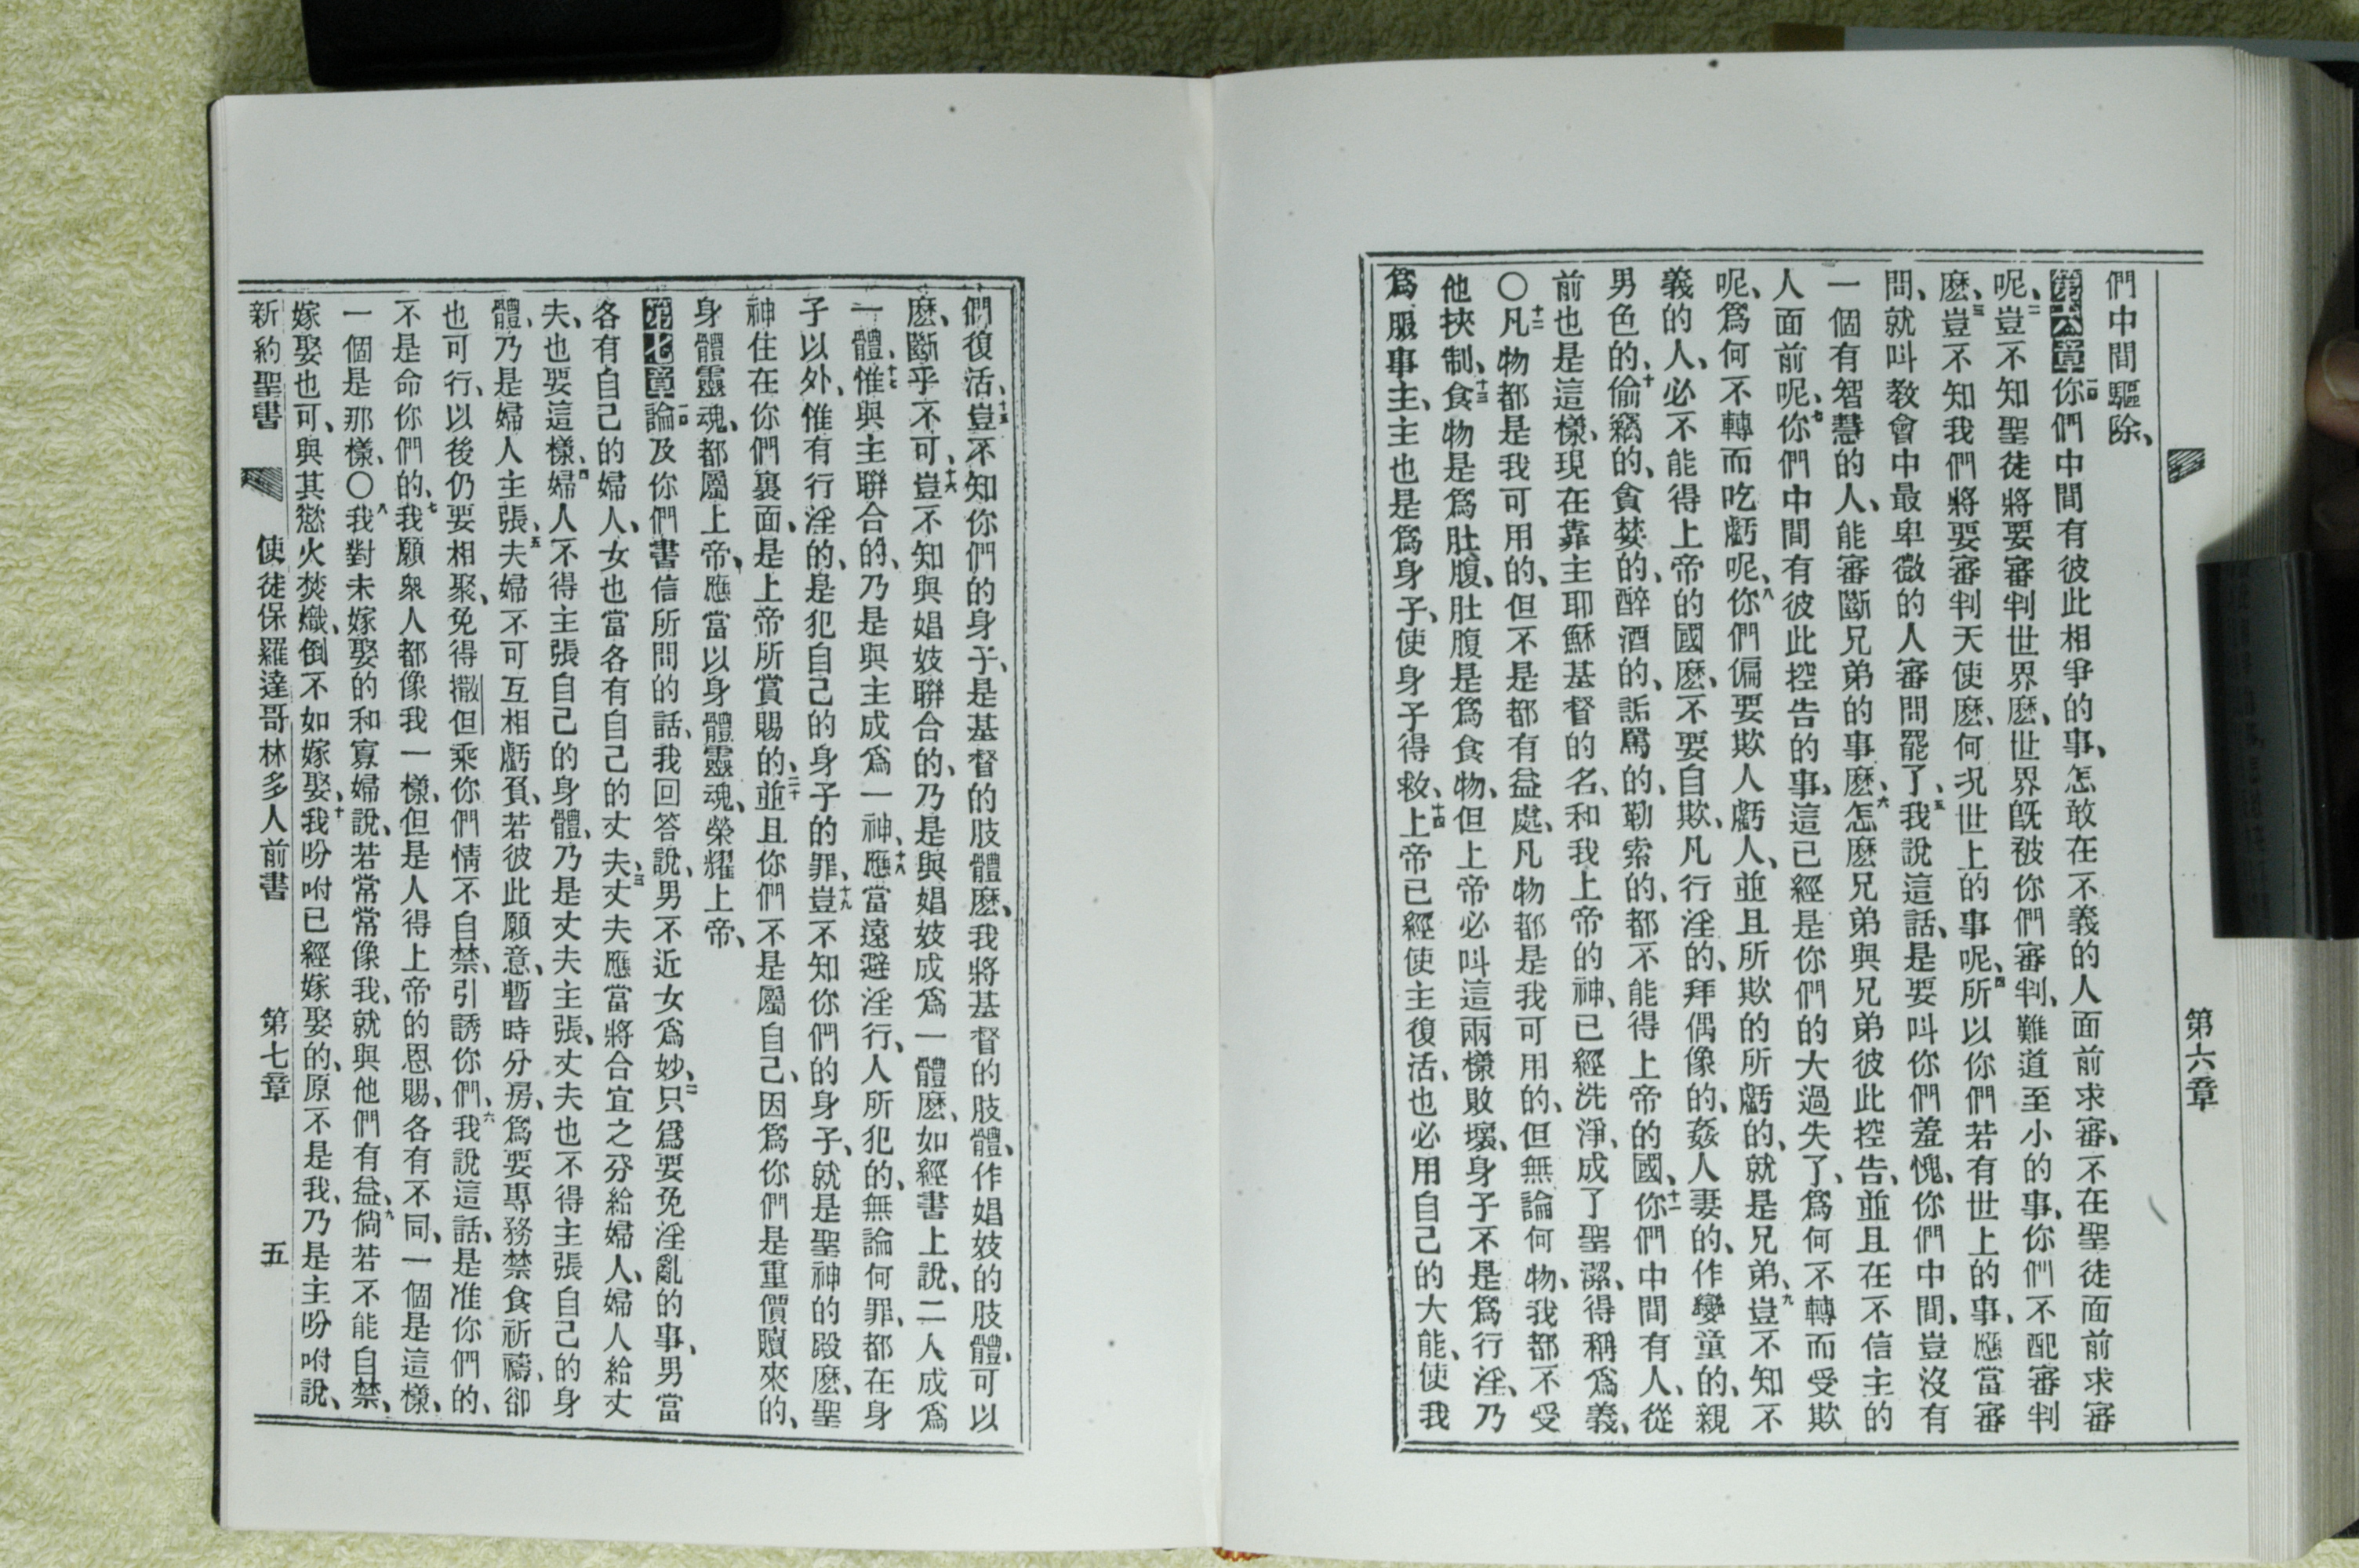 第六章
們中間驅除、
第六章一節你們中間有彼此相爭的事、怎敢在不義的人面前求審、不在聖徒面前求審
呢、二豈不知聖徒將要審判世界麽、世界既被你們審判、難道至小的事、你們不配審判
麽、三豈不知我們將要審判天使麽、何况世上的事呢、四所以你們若有世上的事、應當審
問、就叫教會中最卑微的人審問罷了、五我說這話、是要叫你們羞愧、你們中間、豈沒有
一個有智慧的人、能審斷兄弟的事麽、六怎麽兄弟與兄弟彼此控告、並且在不信主的
人面前呢、七你們中間有彼此控告的事、這已經是你們的大過失了、爲何不轉而受欺
呢、爲何不轉而吃虧呢、八你們偏要欺人虧人、並且所欺的所虧的、就是兄弟、九豈不知不
義的人、必不能得上帝的國麽、不要自欺、凡行淫的、拜偶像的、姦人妻的、作孌童的、親
男色的、十偷竊的、貪婪的、醉酒的、詬駡的、勒索的、都不能得上帝的國、十一你們中間有人、從
前也是這樣、現在靠主耶穌基督的名、和我上帝的神、已經洗淨、成了聖潔、得稱爲義、
〇十二凡物都是我可用的、但不是都有益處、凡物都是我可用的、但無論何物、我都不受
他挾制、十三食物是爲肚腹、肚腹是爲食物、但上帝必叫這兩樣敗壞、身子不是爲行淫、乃
爲服事主、主也是爲身子、使身子得救、十四上帝已經使主復活、也必用自己的大能、使我
們復活、十五豈不知你們的身子、是基督的肢體麽、我將基督的肢體、作娼妓的肢體、可以
麽、斷乎不可、十六豈不知與娼妓聯合的、乃是與娼妓成爲一體麽、如經書上說、二人成爲
一體、十七惟與主聯合的、乃是與主成爲一神、十八應當遠避淫行、人所犯的、無論何罪、都在身
子以外、惟有行淫的、是犯自己的身子的罪、十九豈不知你們的身子、就是聖神的殿麽、聖
神住在你們裏面、是上帝所賞賜的、二十並且你們不是屬自己、因爲你們是重價贖來的、
身體靈魂、都屬上帝、應當以身體靈魂、榮耀上帝、
第七章一節論及你們書信所問的話、我回答說、男不近女爲妙、二只爲要免淫亂的事、男當
各有自己的婦人、女也當各有自己的丈夫、三丈夫應當將合宜之分給婦人、婦人給丈
夫、也要這樣、四婦人不得主張自己的身體、乃是丈夫主張、丈夫也不得主張自己的身
體、乃是婦人主張、五夫婦不可互相虧負、若彼此願意、暫時分房、爲要專務禁食祈禱、卻
也可行、以後仍要相聚、免得撒但乘你們情不自禁、引誘你們、六我說這話、是准你們的、
不是命你們的、七我願衆人都像我一樣、但是人得上帝的恩賜、各有不同、一個是這樣、
一個是那樣、〇八我對未嫁娶的和寡婦說、若常常像我、就與他們有益、九倘若不能自禁、
嫁娶也可、與其慾火焚熾、倒不如嫁娶、十我吩咐已經嫁娶的、原不是我、乃是主吩咐說、
新約聖書 使徒保羅達哥林多人前書 第七章 五